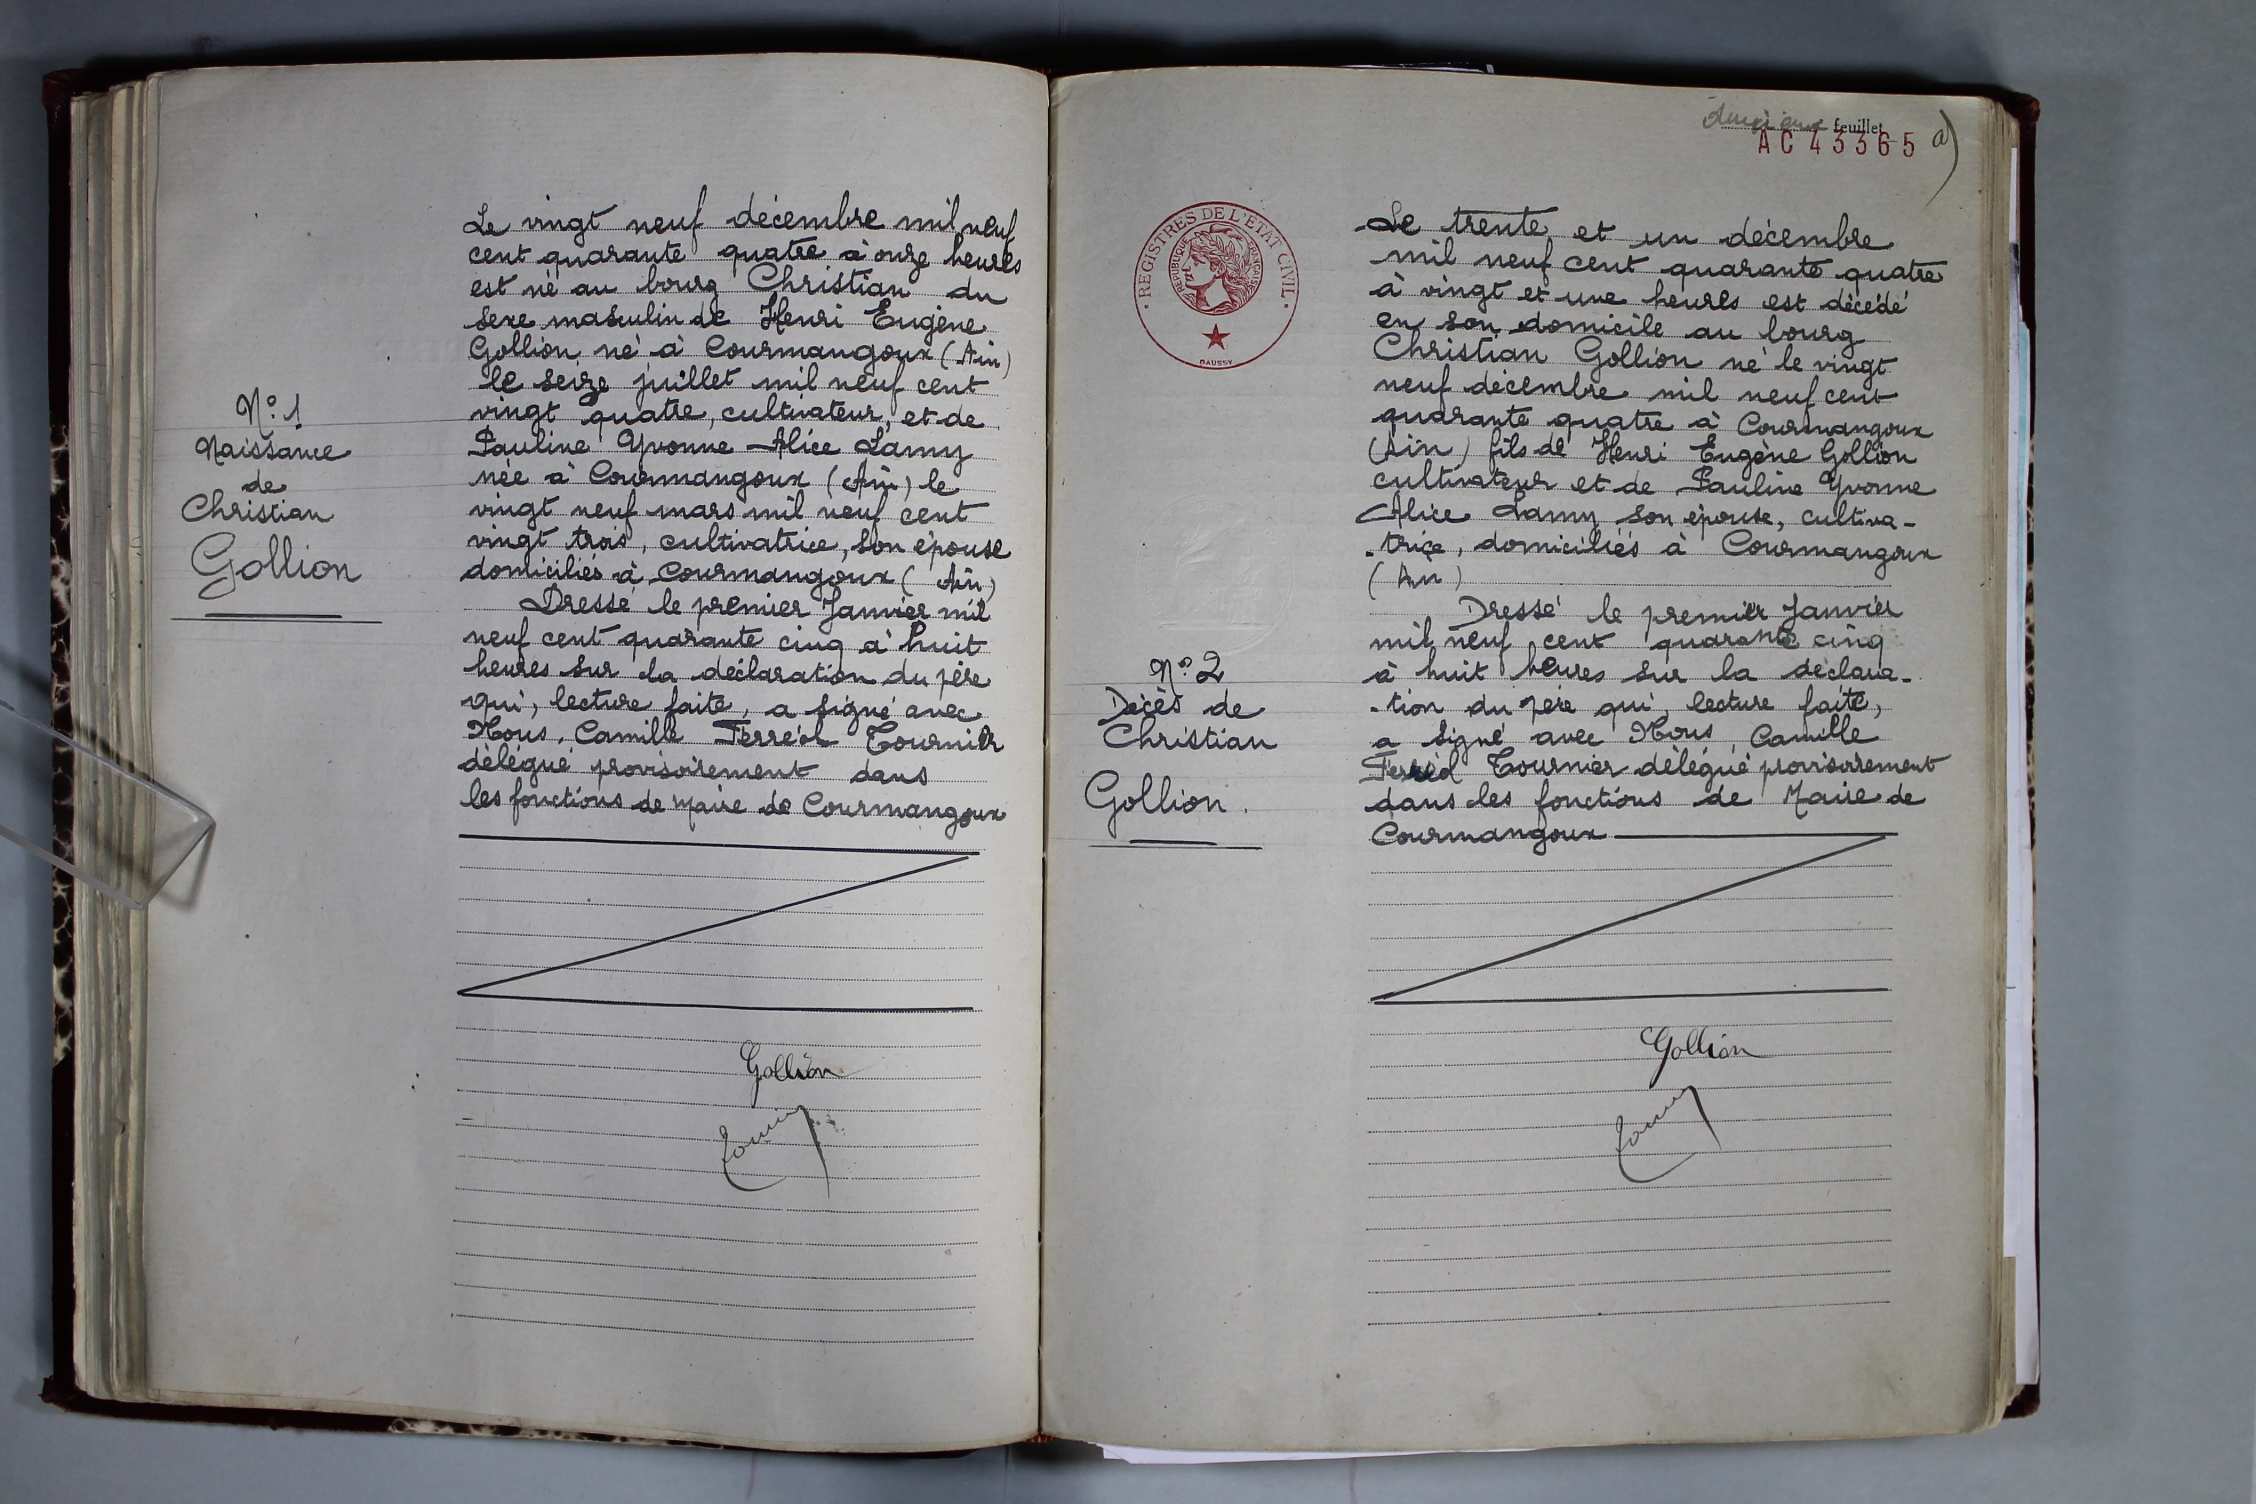 N° 1
Naissance
de
Christian
Gollion
Le vingt neuf décembre mil neuf
cent quarante quatre à onze heures
est né au bourg Christian du
sexe masculin de Henri Eugène
Gollion né à Courmangoux (Ain)
le seize juillet mil neuf cent
vingt quatre, cultivateur, et de
Pauline Yvonne Alice Lamy
née à Courmangoux (Ain) le
vingt neuf mars mil neuf cent
vingt trois, cultivatrice, son épouse
domiciliés à Courmangoux (Ain)
Dressé le premier Janvier mil
neuf cent quarante cinq à huit
heures sur la déclaration du père
qui, lecture faite, a signé avec
Nous, Camille Ferréol Tournier
délégué provisoirement dans
les fonctions de Maire de Courmangoux
Gollion
feuillet
AC 43365
a)
REGISTRES DE L'ETAT CIVIL
REPUBLIQUE FRANÇAISE
DAUSSY
N° 2
Décès de
Christian
Gollion.
Le trente et un décembre
mil neuf cent quarante quatre
à vingt et une heures est décédé
en son domicile au bourg
Christian Gollion né le vingt
neuf décembre mil neuf cent
quarante quatre à Courmangoux
(Ain) fils de Henri Eugène Gollion
cultivateur et de Pauline Yvonne
Alice Lamy son épouse, cultiva-
-trice, domiciliés à Courmangoux
(Ain)
Dressé le premier Janvier
mil neuf cent quarante cinq
à huit heures sur la déclara-
-tion du père qui, lecture faite,
a signé avec Nous, Camille
Ferréol Tournier délégué provisoirement
dans les fonctions de Maire de
Courmangoux
Gollion